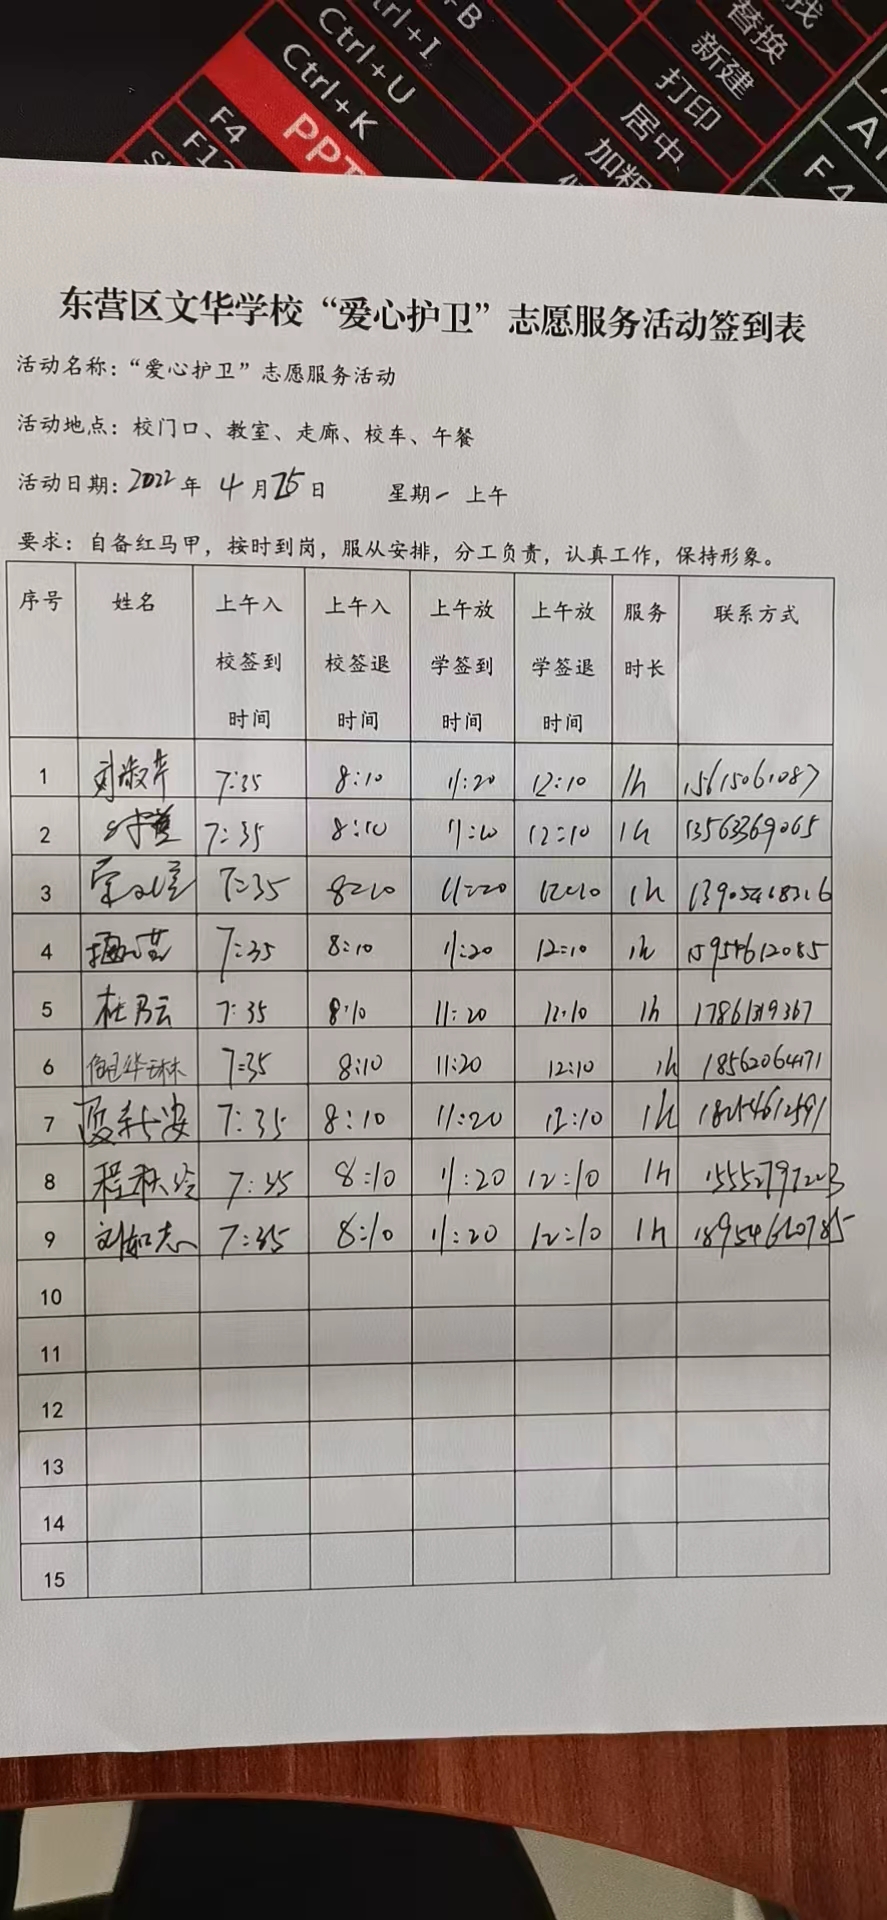 +B
Ctrl+I
Ctrl+U
Ctrl+K
PPT
F4
F12
替换
新建
打印
居中
加粗
F4
东营区文华学校“爱心护卫”志愿服务活动签到表
活动名称：“爱心护卫”志愿服务活动
活动地点：校门口、教室、走廊、校车、午餐
活动日期：2022年 4月25日 星期一 上午
要求：自备红马甲，按时到岗，服从安排，分工负责，认真工作，保持形象。
序号 姓名 上午入校签到时间 上午入校签退时间 上午放学签到时间 上午放学签退时间 服务时长 联系方式
1 刘淑芹 7:35 8:10 11:20 12:10 1h 15615061087
2 7:35 8:10 12:10 1h 13563369065
3 7:35 8:10 11:20 12:10 1h
4 7:35 8:10 11:20 12:10 1h 15954612085
5 杜乃云 7:35 8:10 11:20 12:10 1h 17861319367
6 7:35 8:10 11:20 12:10 1h 18562064171
7 7:35 8:10 11:20 12:10 1h
8 程秋玲 7:35 8:10 11:20 12:10 1h
9 刘如志 7:35 8:10 11:20 12:10 1h 18954610785
10
11
12
13
14
15